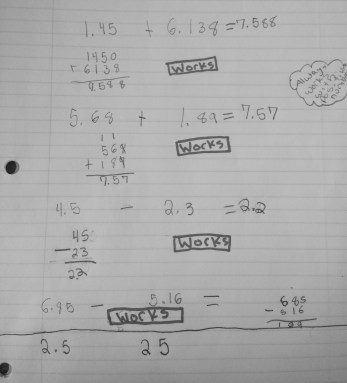 1.45 + 6.138 = 7.588
1450
+ 6138
7588
Works
Always
works
5.68 + 1.89 = 7.57
1 1
568
+ 189
7.57
Works
4.5 - 2.3 = 2.2
45
- 23
2.2
Works
6.85 - 5.16 =
685
- 516
Works
2.5 25